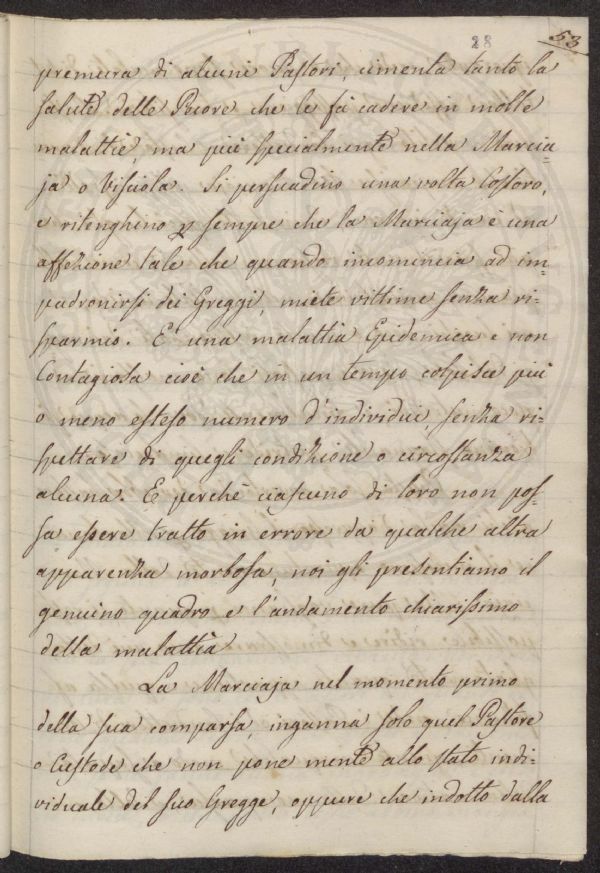 28 53
premura di alcuni Pastori, cimenta tanto la
salute delle Pecore che le fà cadere in molte
malattie, ma più specialmente nella Marcia=
ja o Visciola. Si persuadino una volta Costoro,
e ritenghino p sempre che la Marciaja è una
affezione tale che quando incomincia ad im=
padronirsi dei Greggi, miete vittime senza ri=
sparmio. È una malattia Epidemica e non
Contagiosa cioè che in un tempo colpisce più
o meno esteso numero d'individui, senza ri=
spettare di quegli condizione o circostanza
alcuna. E perchè ciascuno di loro non pos=
sa essere tratto in errore da qualche altra
apparenza morbosa, noi gli presentiamo il
genuino quadro e l'andamento chiarissimo
della malattia
La Marciaja nel momento primo
della sua comparsa, inganna solo quel Pastore
o Custode che non pone mente allo stato indi=
viduale del suo Gregge, oppure che indotto dalla